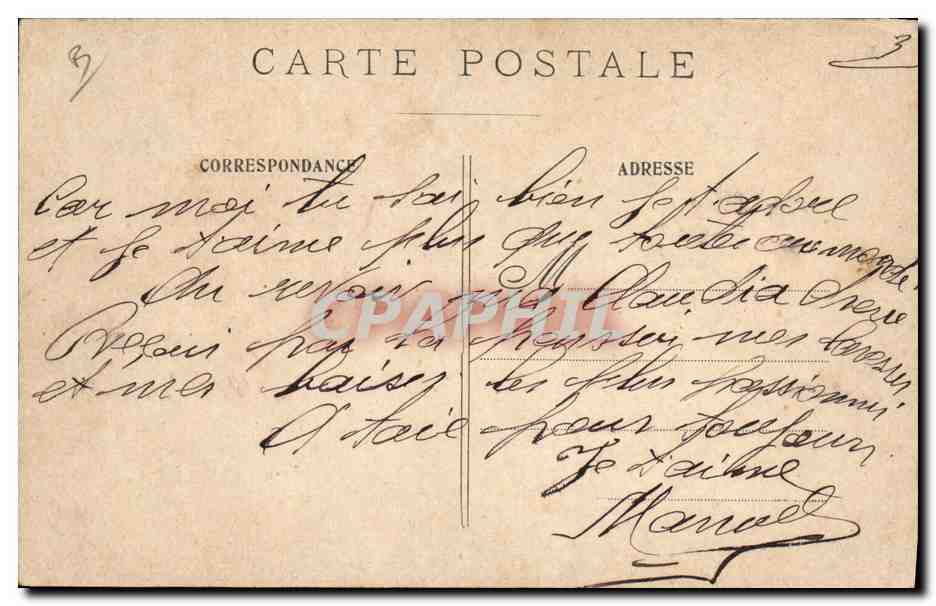 3
3
CARTE POSTALE
CORRESPONDANCE
ADRESSE
Car moi tu sai bien je t'adore
et je t'aime plus que tout au monde
Au revoir ma Claudia cherie
Reçois par la pensser mes caresses
et mes baiser les plus passionné
A toie pour toujour
Je t'aime
Manuel
CPAPHIL